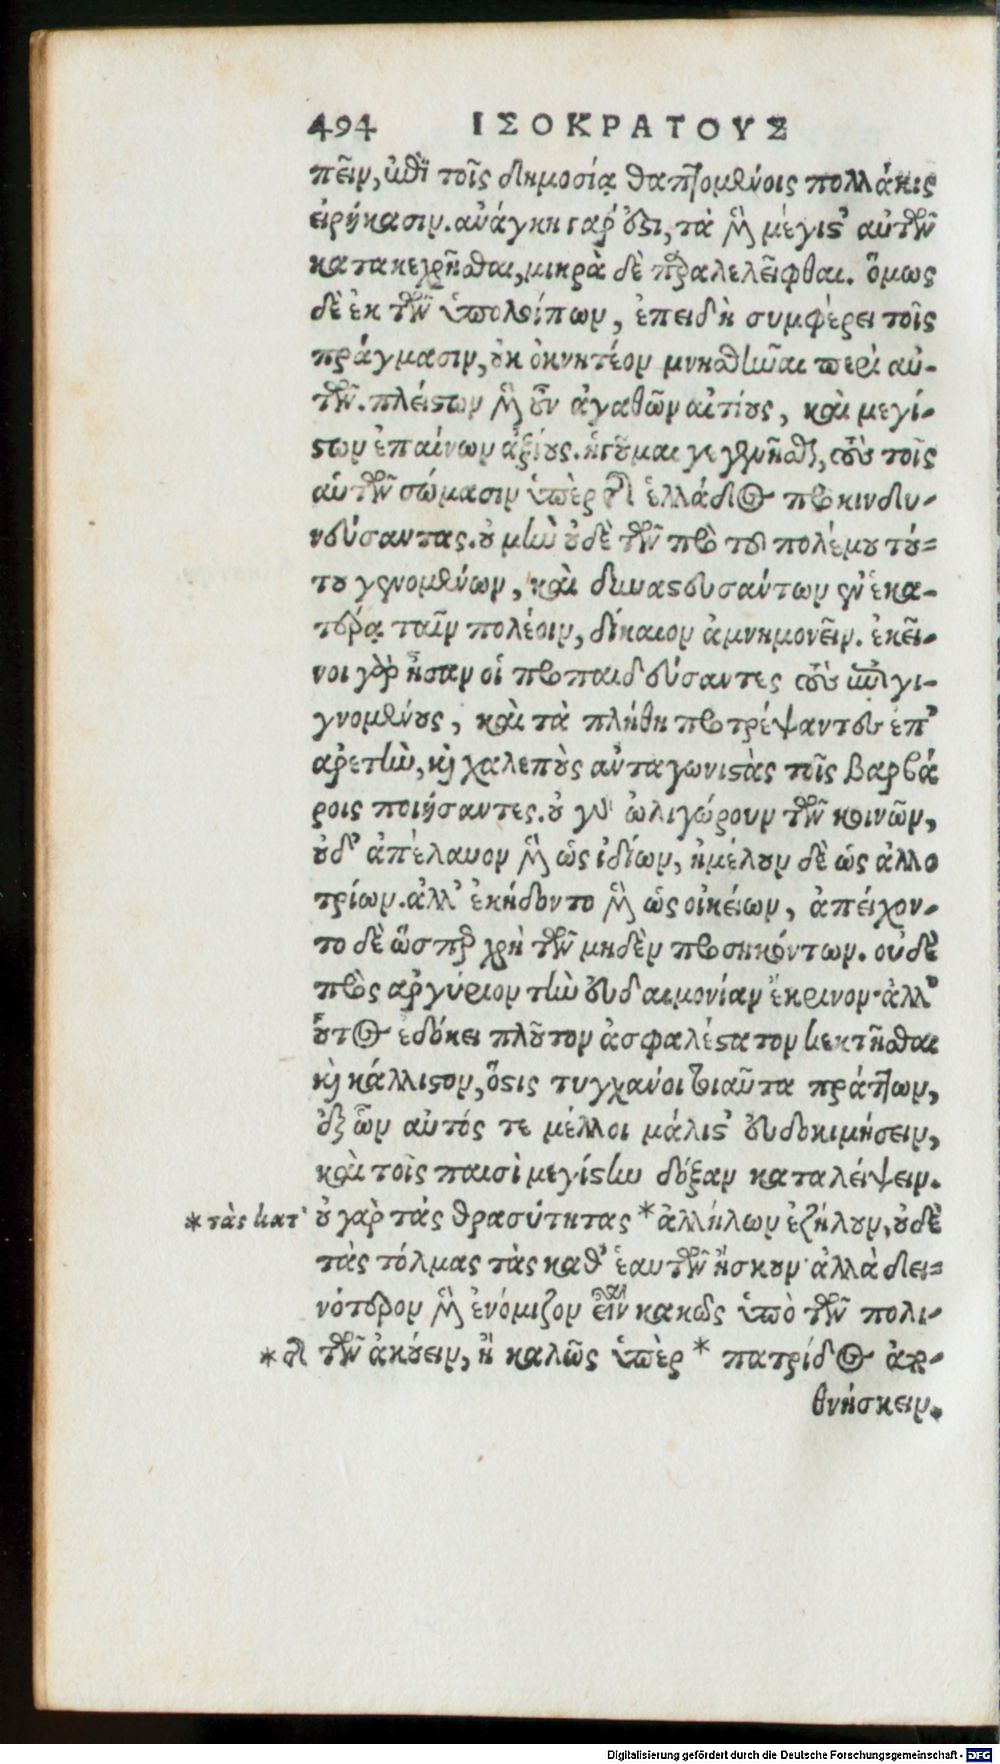 494 ΙΣΟΚΡΑΤΟΥΣ
πεῖν, ἐπὶ τοῖς δημοσίᾳ θαπτομένοις πολλάκις
εἰρήκασιν. ἀνάγκη γάρ ὅτι, τὰ μὲν μέγιστ᾽ αὐτῶν
κατακεχρῆσθαι, μικρὰ δὲ παραλελεῖφθαι. ὅμως
δὲ ἐκ τῶν ὑπολοίπων, ἐπειδὴ συμφέρει τοῖς
πράγμασιν, οὐκ ὀκνητέον μνησθῆναι περὶ αὐ-
τῶν. πλείστων μὲν οὖν ἀγαθῶν αἰτίους, καὶ μεγί-
στων ἐπαίνων ἀξίους. ἡγοῦμαι γεγενῆσθαι, τοὺς τοῖς
αὑτῶν σώμασιν ὑπὲρ τῆς ἑλλάδος προκινδυ-
νεύσαντας. οὐ μὴν οὐδὲ τῶν πρὸ τοῦ πολέμου τού-
του γενομένων, καὶ δυναστευσάντων ἐν ἑκα-
τέρᾳ ταῖν πολέοιν, δίκαιον ἀμνημονεῖν. ἐκεῖ-
νοι γὰρ ἦσαν οἱ προπαιδεύσαντες τοὺς ἐπιγι-
γνομένους, καὶ τὰ πλήθη προτρέψαντες ἐπ᾽
ἀρετὴν, καὶ χαλεποὺς ἀνταγωνιστὰς τοῖς βαρβά
ροις ποιήσαντες. οὐ γὰρ ὠλιγώρουν τῶν κοινῶν,
οὐδ᾽ ἀπέλαυον μὲν ὡς ἰδίων, ἠμέλουν δὲ ὡς ἀλλο
τρίων. ἀλλ᾽ ἐκήδοντο μὲν ὡς οἰκείων, ἀπείχον-
το δὲ ὥσπερ χρὴ τῶν μηδὲν προσηκόντων. οὐδὲ
πρὸς ἀργύριον τὴν εὐδαιμονίαν ἔκρινον· ἀλλ᾽
οὗτος ἐδόκει πλοῦτον ἀσφαλέστατον κεκτῆσθαι
καὶ κάλλιστον, ὅστις τυγχάνοι τοιαῦτα πράττων,
ἐξ ὧν αὐτός τε μέλλοι μάλιστ᾽ εὐδοκιμήσειν,
καὶ τοῖς παισὶ μεγίστην δόξαν καταλείψειν.
*τὰς κατ᾽ οὐ γὰρ τάς θρασύτητας *ἀλλήλων ἐζήλουν, οὐδὲ
τὰς τόλμας τὰς καθ᾽ ἑαυτῶν ἤσκουν· ἀλλὰ δει-
νότερον μὲν ἐνόμιζον εἶναι κακῶς ὑπὸ τῶν πολι-
*τῆς τῶν ἀκούειν, ἢ καλῶς ὑπὲρ * πατρίδος ἀπο-
θνήσκειν.
Digitalisierung gefördert durch die Deutsche Forschungsgemeinschaft - DFG